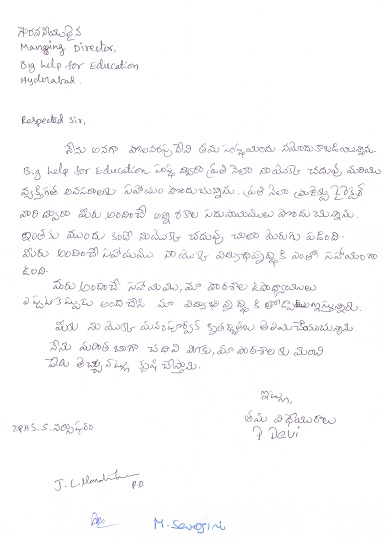 గౌరవనీయులైన
Managing Director,
Big help for Education
Hyderabad.
Respected Sir,
నేను అనగా పోలవరపు దేవి తమ సంస్థయందు నమోదు కాబడియున్నాను.
Big help for Education సంస్థ ద్వారా ప్రతి నెలా నాయొక్క చదువు మరియు
వ్యక్తిగత అవసరాలకు సహాయం పొందుచున్నాను. ప్రతి నెలా ప్రాజెక్టు డైరెక్టర్
వారి ద్వారా మీరు అందించే అన్ని రకాల సదుపాయములు పొందుచున్నాను.
ఇంతకు ముందు కంటే నాయొక్క చదువు చాలా మెరుగు పడింది.
మీరు అందించే సహాయము నా యొక్క విద్యాభివృద్ధికి ఎంతో సహాయంగా
ఉంది.
మీరు అందించే సహాయము, మా పాఠశాల ఉపాధ్యాయులు
ఎప్పటికప్పుడు అందచేసి మా విద్యాభివృద్ధికి తోడ్పాటు ఇస్తున్నారు.
మీకు నా యొక్క మనఃపూర్వక కృతజ్ఞతలు తెలియచేయుచున్నాను.
నేను మరింత బాగా చదివి మీకు, మా పాఠశాలకు మంచి
పేరు తెచ్చుటకు కృషి చేస్తాను.
ఇట్లు,
తమ విధేయురాలు
P Devi
ZPHS.S.నర్సాపురం
P.D
M. Sarojini